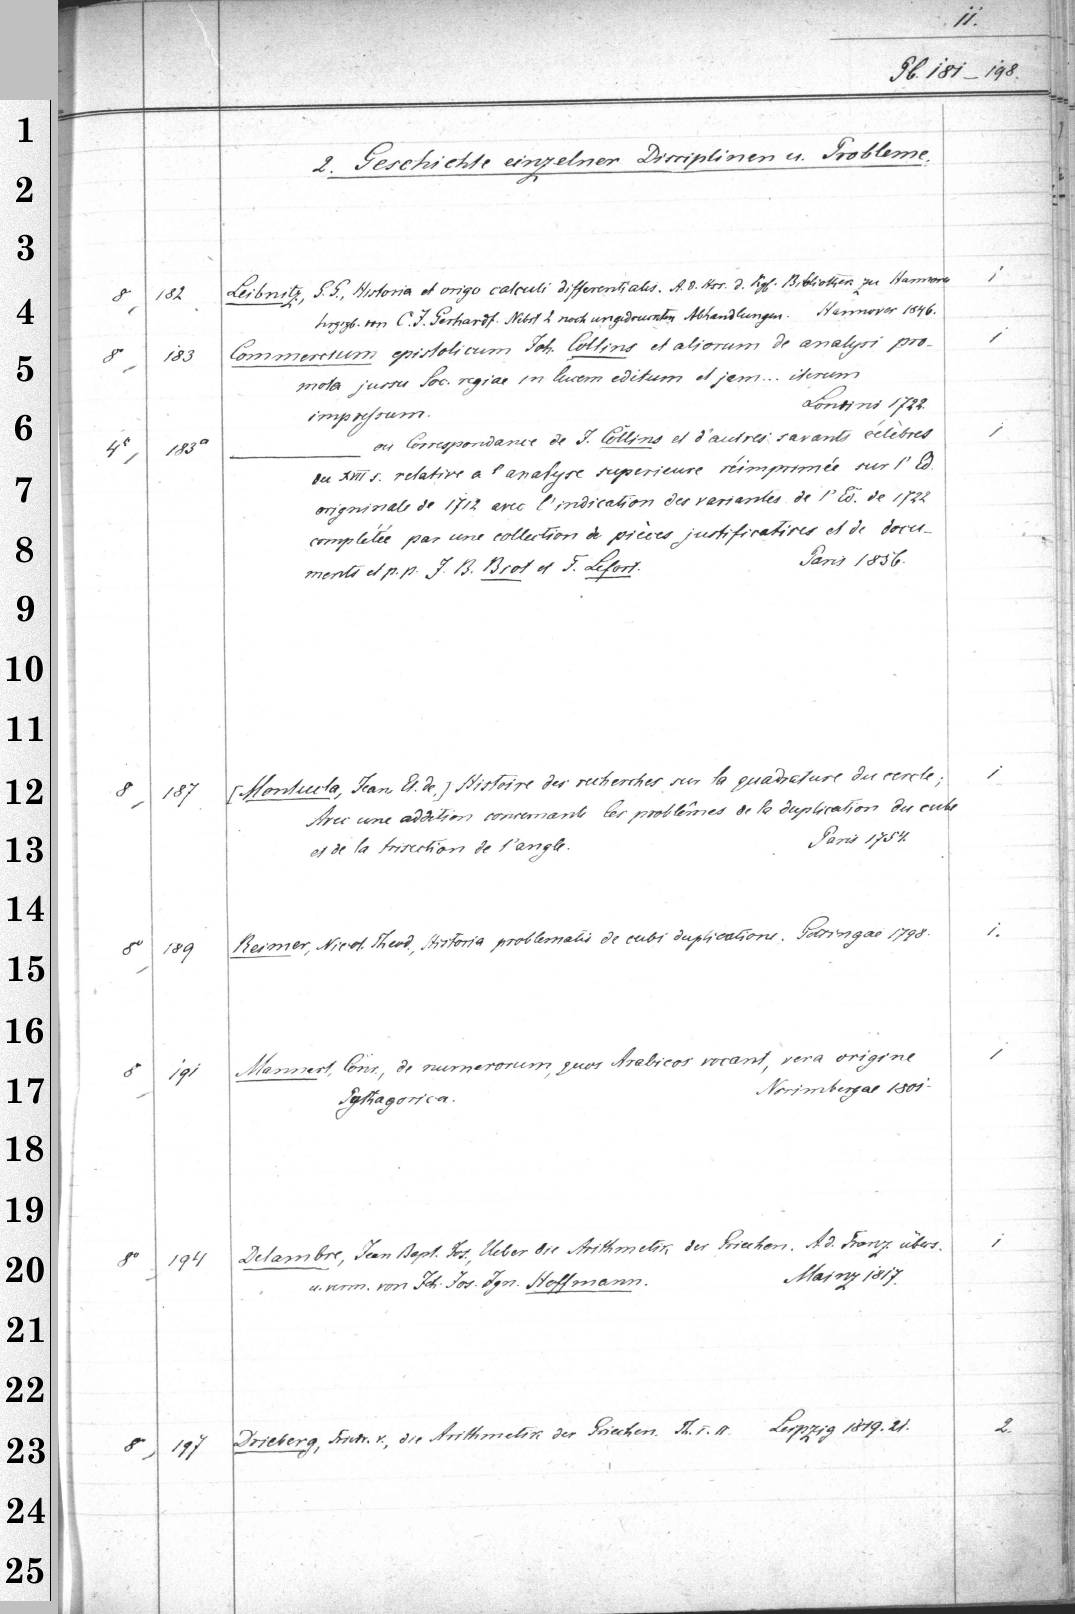 11.
Pb. 181 – 198.
1
2. Geschichte einzelner Disciplinen u. Probleme.
2
3
8°, 182 Leibnitz, G. G., Historia et origo calculi differentialis. A. d. Hss. d. Kgl. Bibliothek zu Hannover 1
4 hrsgb. von C. J. Gerhardt. Nebst 2 noch ungedruckten Abhandlungen. Hannover 1846.
8°, 183 Commercium epistolicum Joh. Collins et aliorum de analysi pro- 1
5 mota jussu Soc. regiae in lucem editum et jam... iterum
impressum. Londini 1722.
6
4°, 183a ——— ou Correspondance de J. Collins et d'autres savants célèbres 1
du XVII s. relative a l'analyse superieure réimprimée sur l'Ed.
7 originale de 1712 avec l'indication des variantes de l'Ed. de 1722
8 complétée par une collection de pièces justificatives et de docu-
ments et p. p. J. B. Biot et F. Lefort. Paris 1856.
9
10
11
8°, 187 [Montucla, Jean Et. de,] Histoire des recherches sur la quadrature du cercle; 1
12 Avec une addition concernante les problêmes de la duplication du cube
13 et de la trisection de l'angle. Paris 1754.
14
8°, 189 Reimer, Nicol. Theod., Historia problematis de cubi duplicatione. Gottingae 1798. 1.
15
16
8°, 191 Mannert, Conr., de numerorum, quos Arabicos vocant, vera origine 1
17 Pythagorica. Norimbergae 1801.
18
19
8°, 194 Delambre, Jean Bapt. Jos., Ueber die Arithmetik der Griechen. A. d. Franz. übers. 1
20 u. verm. von Joh. Jos. Ign. Hoffmann. Mainz 1817.
21
22
8°, 197 Drieberg, Friedr. v., die Arithmetik der Griechen. Th. I. II. Leipzig 1819. 21. 2.
23
24
25